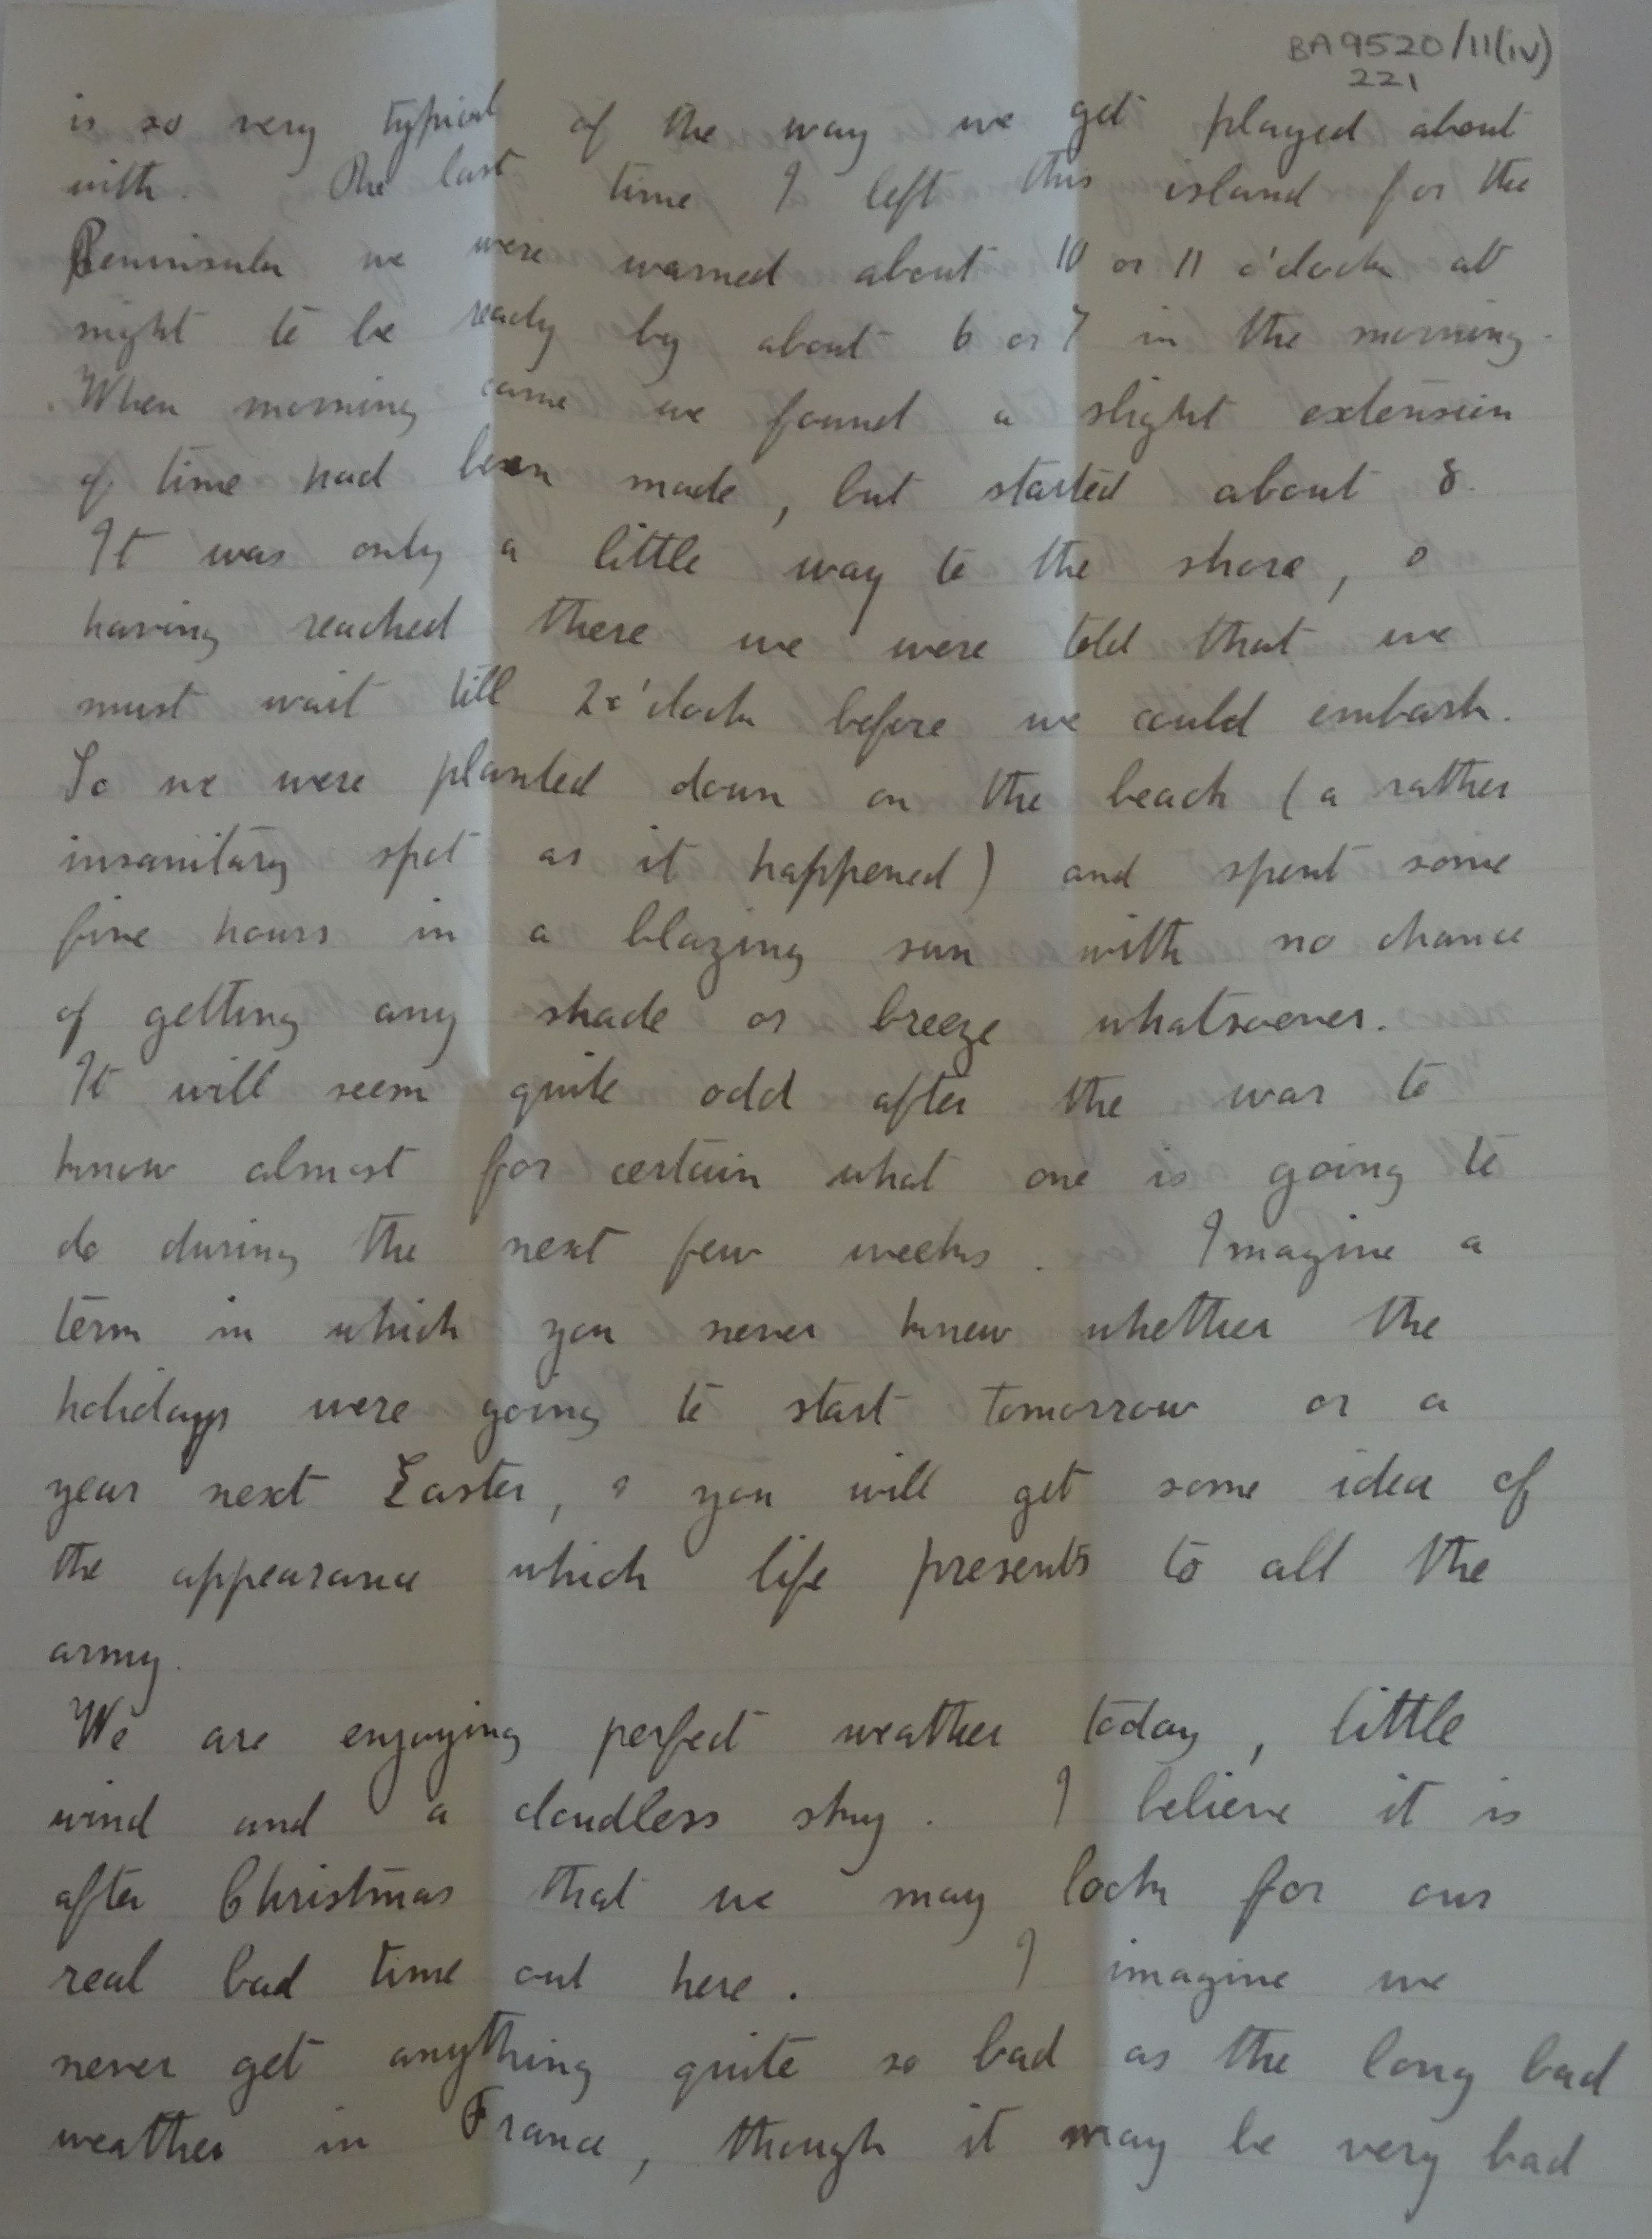 BA9520/11(iv)
221
is so very typical of the way we get played about
with. The last time I left this island for the
Peninsula we were warned about 10 or 11 o'clock at
night to be ready by about 6 or 7 in the morning.
When morning came we found a slight extension
of time had been made, but started about 8.
It was only a little way to the shore, &
having reached there we were told that we
must wait till 2 o'clock before we could embark.
So we were planted down on the beach (a rather
insanitary spot as it happened) and spent some
five hours in a blazing sun with no chance
of getting any shade or breeze whatsoever.
It will seem quite odd after the war to
know almost for certain what one is going to
do during the next few weeks. Imagine a
term in which you never knew whether the
holidays were going to start tomorrow or a
year next Easter, & you will get some idea of
the appearance which life presents to all the
army.
We are enjoying perfect weather today, little
wind and a cloudless sky. I believe it is
after Christmas that we may look for our
real bad time out here. I imagine we
never get anything quite so bad as the long bad
weather in France, though it may be very bad